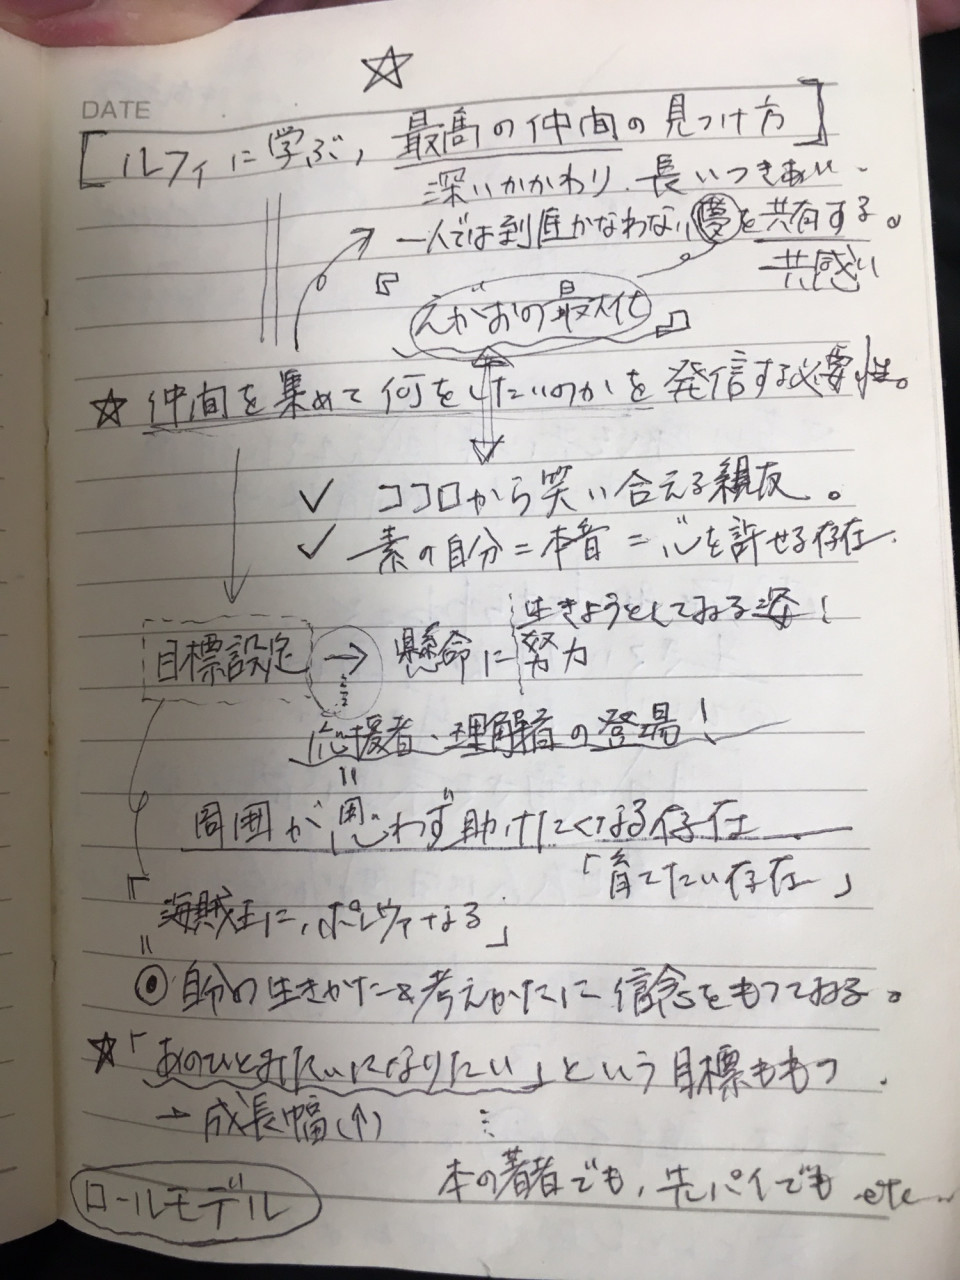 ☆
DATE
[ルフィに学ぶ, 最高の仲間の見つけ方]
深いかかわり、長いつきあい.
一人では到底かなわない夢を共有する。
共感
「えがおの最大化」
☆ 仲間を集めて何をしたいのかを発信する必要性。
✓ ココロから笑い合える親友。
✓ 素の自分=本音=心を許せる存在.
生きようとしておる姿!
目標設定 → 懸命に努力
応援者・理解者の登場!
=
周囲が思わず助けたくなる存在
「育てたい存在」
「海賊王に,オレゥァなる」
=
◎ 自分の生きかた&考えかたに信念をもっておる。
☆「あのひとみたいになりたい」という目標ももつ.
→ 成長幅(↑)
本の著者でも, 先パイでも etc...
ロールモデル